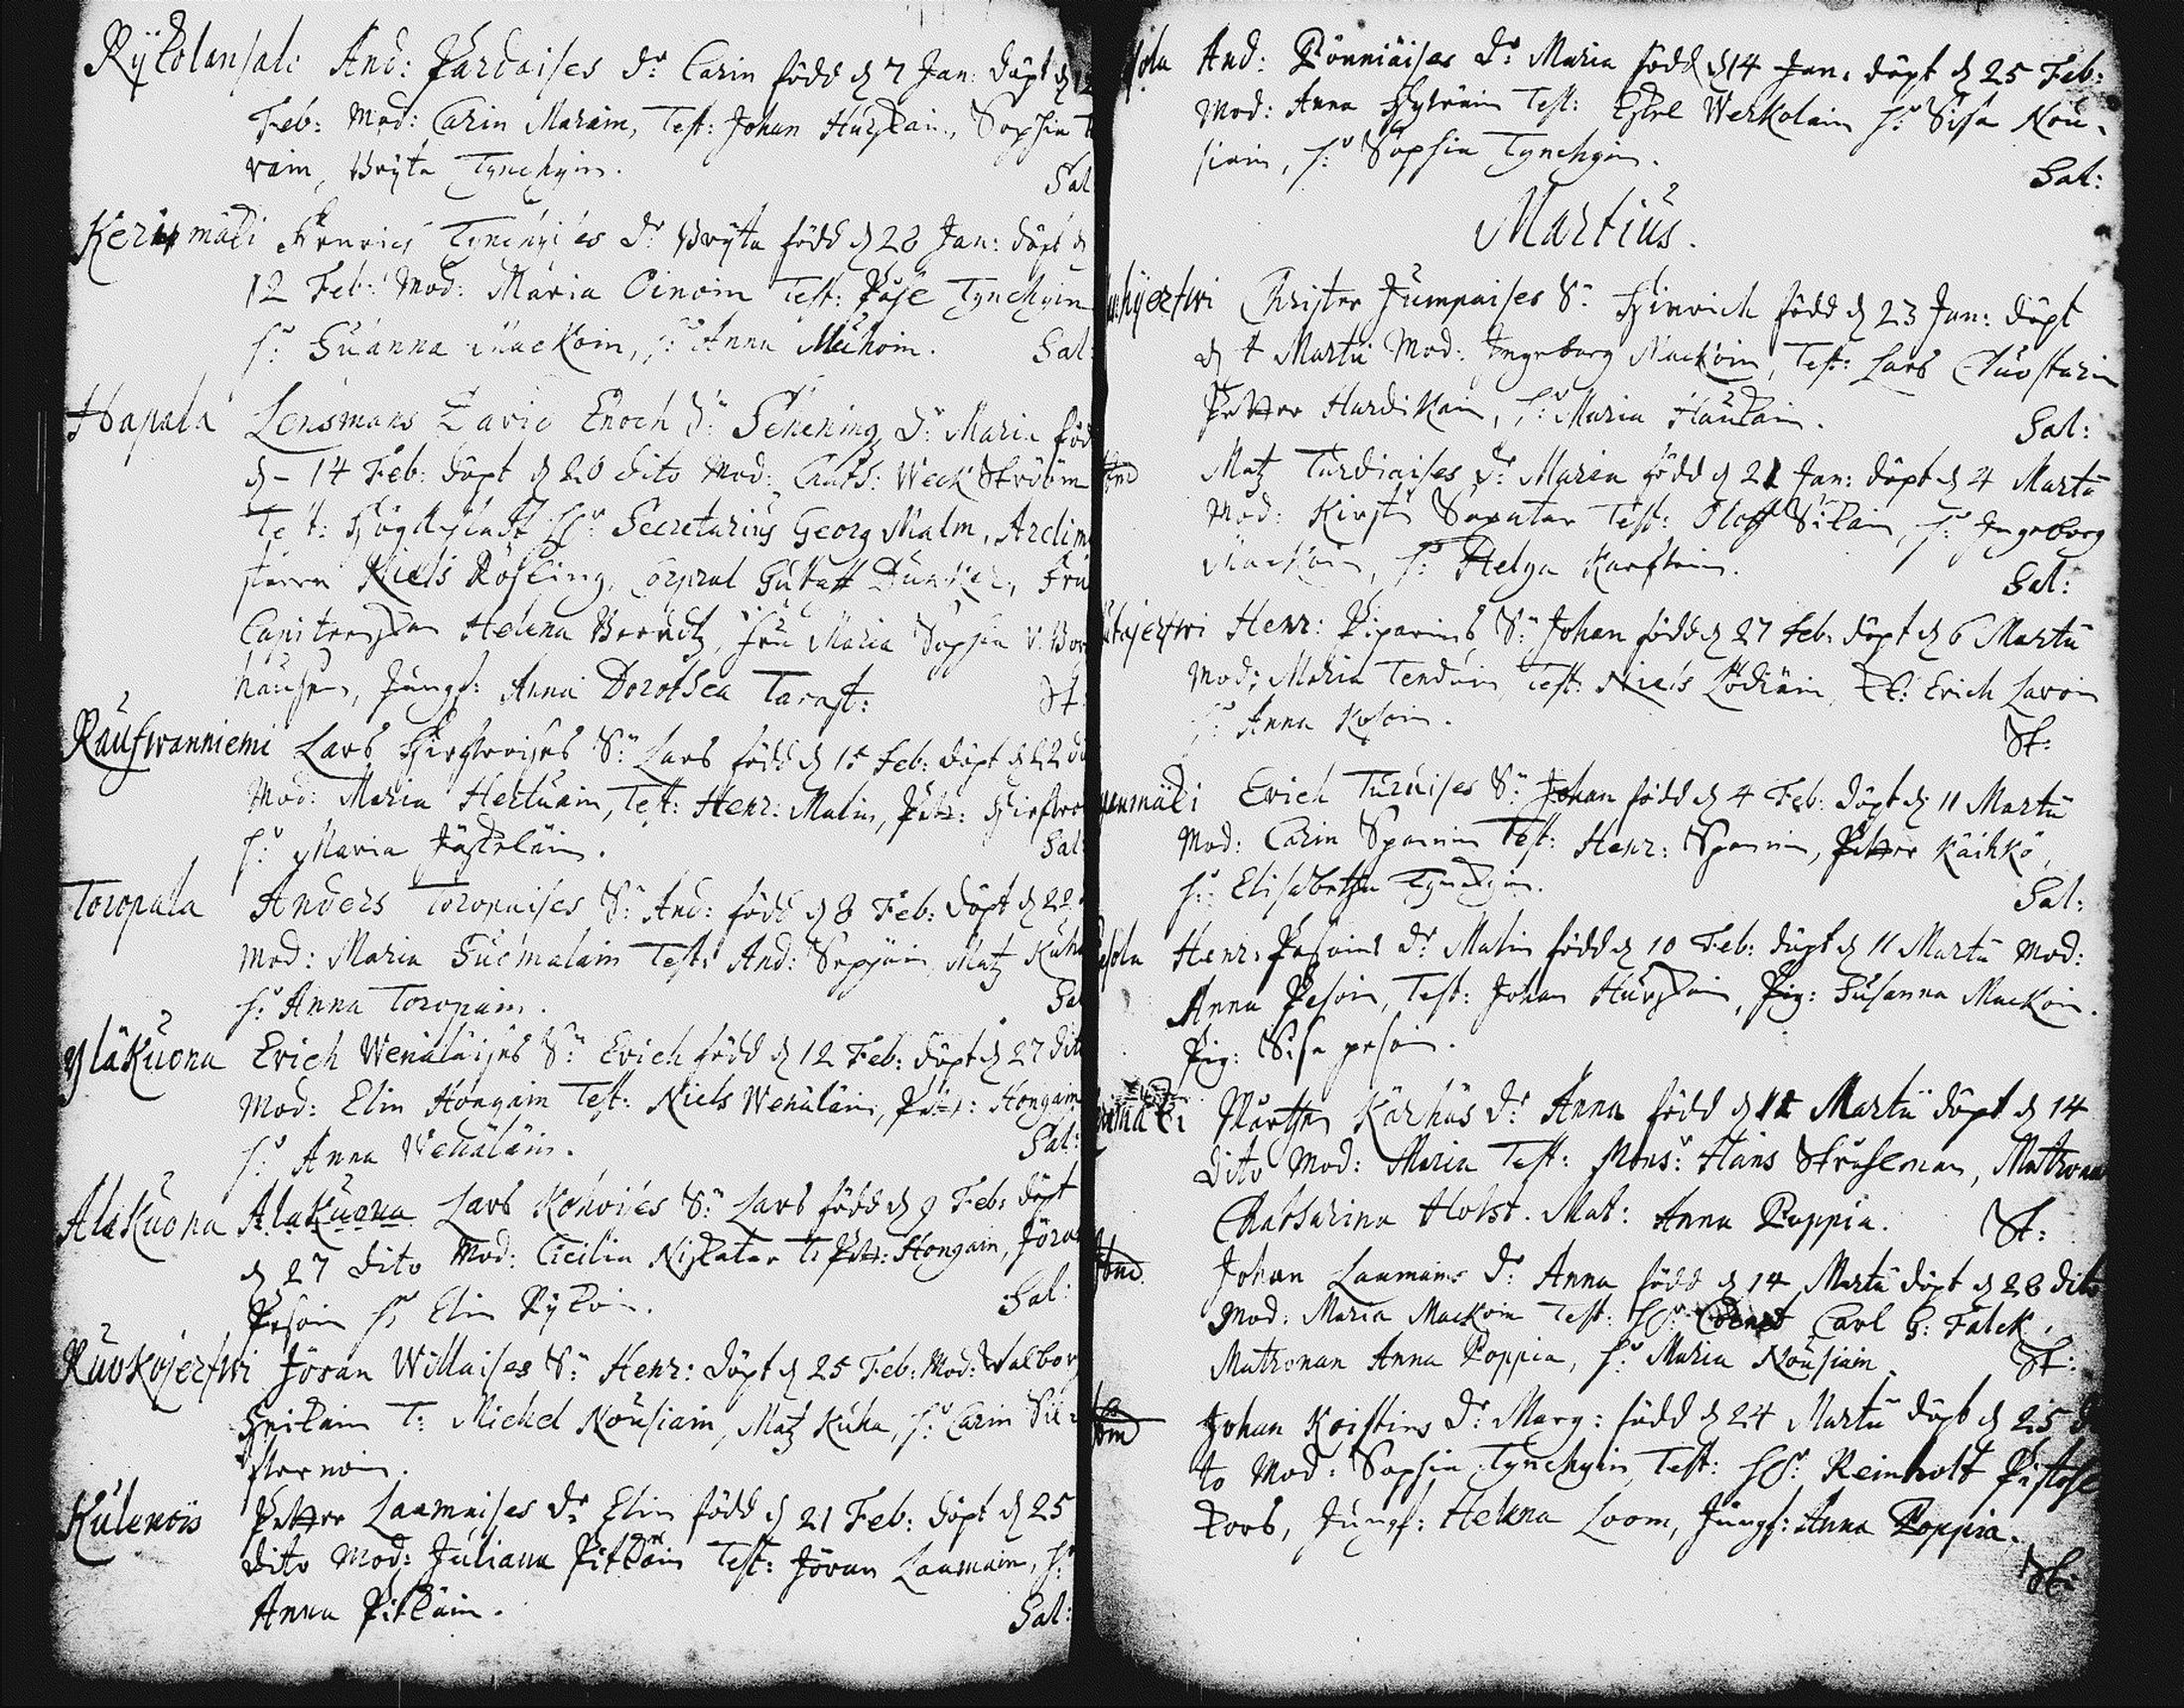 Rÿkolansali And: Pardaises Dr Carin född d 7 Jan: döpt d 12
Feb: Mod: Carin Marain, Test: Johan Hurskain, Sophia
rain, Bryta Tynchyin. Sal
Kerismäki Henrics Tynchyies Dr Bryta född d 28 Jan: döpt d
12 Feb: Mod: Maria Oinoin Test: Påhl Tynchyin
h: Suanna Mackoin, h: Anna Muhoin. Sal:
Hapala Lensmans David Enoch Sehening Dr Maria föd
d 14 Feb: döpt d 20 dito Mod: Cath: Weck Ström
Test: Secretarius Georg Malm,
Niels Rösling, Corpral Gustaff Duncker, Fru
Helena Berndtz, Fru Maria Sophia v: Bor
hausen, Jungf: Anna Dorothea Tarast: St:
Raufwanniemi Lars S: Lars född d 15 Feb: döpt d 22 di
Mod: Maria Hertuain, Test: Henr: Malin, Pett:
h: Maria Jäskeläin. Sal
Toropala Anders Toropaises S: And: född d 8 Feb: döpt d 22
Mod: Maria Suemalain Test: And: Seppäin, Matz Kuha
h: Anna Toropain. Sal
Yläkuona Erich Wenäläises S: Erich född d 12 Feb: döpt d 27 dito
Mod: Elin Hongain Test: Niels Wenäläin, Pett: Hongain
h: Anna Wenäläin. Sal:
Alakuona Alakuona Lars Kohvies S: Lars född d 9 Feb: döpt
d 27 dito Mod: Cicilia Niskatar T: Pett: Hongain, Jöran
Pesoin h: Elin Rykoin. Sal:
Ruokojerfwi Jöran Willaises S: Henr: döpt d 25 Feb: Mod: Walbor
Heikain T: Michel Nousiain, Matz Kuha, h: Carin Sil
fwernoin.
Kulenois Petter Laamaises Dr Elin född d 21 Feb: döpt d 25
dito Mod: Juliana Pitkäin Test: Jöran Laamain, h:
Anna Pitkäin. Sal:
sola And: Rönniäises Dr Maria född d 14 Jan: döpt d 25 Feb:
Mod: Anna Hyvräin Test: Eskel Werkolain h: Sisa Nou-
siain, h: Sophia Tynchyin. Sal:
Martius.
hyerfwi Christer Jumpaises S: Hinrich född d 23 Jan: döpt
d 1 Martii Mod: Ingeborg Mackoin, Test: Lars
Petter Hardikain, h: Maria Haukain. Sal:
Matz Turdiaises Dr Maria född d 21 Jan: döpt d 4 Martii
Mod: Kirstin Sapatar Test: Oloff Silain, h: Ingeborg
Mackoin, h: Helga Karstein. Sal:
tajerfwi Henr: Piparins S: Johan född d 27 Feb: döpt d 6 Martii
Mod: Maria Tenduin Test: Niels Lödiäin, Erich Lavoin
h: Anna Kosoin. St:
enmäki Erich Turuises S: Johan född d 4 Feb: döpt d 11 Martii
Mod: Carin Spanin Test: Henr: Spanin, Petter Kaihko,
h: Elisabetha Tynchyin. Sal:
Pesola Henr: Pesoins Dr Malin född d 10 Feb: döpt d 11 Martii Mod:
Anna Pesoin, Test: Johan Hurskain, Pig: Susanna Mackoin.
Pig: Sisa pesoin.
mäki Mårthen Karhus Dr Anna född d 11 Martii döpt d 14
dito Mod: Maria Test: Mons: Hans Struselman, Matrona
Chatharina Holst. Mat: Anna Poppia. St:
Johan Laamains Dr Anna född d 14 Martii döpt d 28 dito
Mod: Maria Mackoin Test: Hr: Carl G: Falck,
Matronan Anna Poppia, h: Maria Nousiain. St:
Johan Koistins Dr Marg: född d 24 Martii döpt d 25 di
to Mod: Sophia Tynchyin, Test: Hr: Reinholt Pistohl
kors, Jungf: Helena Loom, Jungf: Anna Poppia.
St: